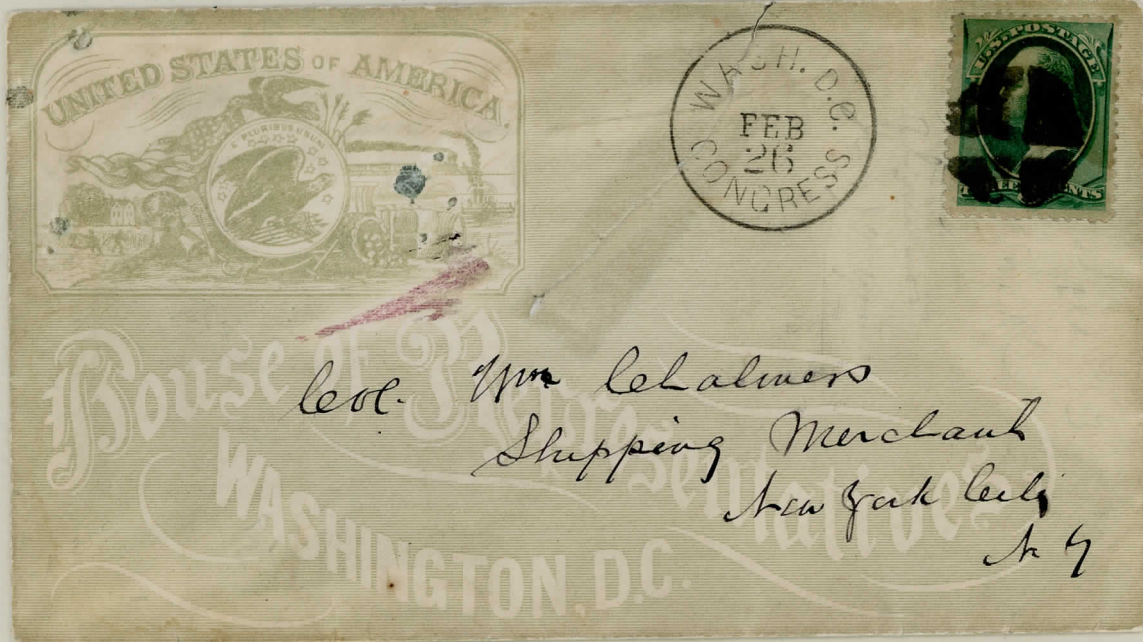 UNITED STATES OF AMERICA.
E PLURIBUS UNUM
WASH. D.C.
FEB
26
CONGRESS
U.S. POSTAGE
THREE CENTS
House of Representatives
WASHINGTON, D.C.
Col. Wm Chalmers
Shipping Merchant
New York City
N Y